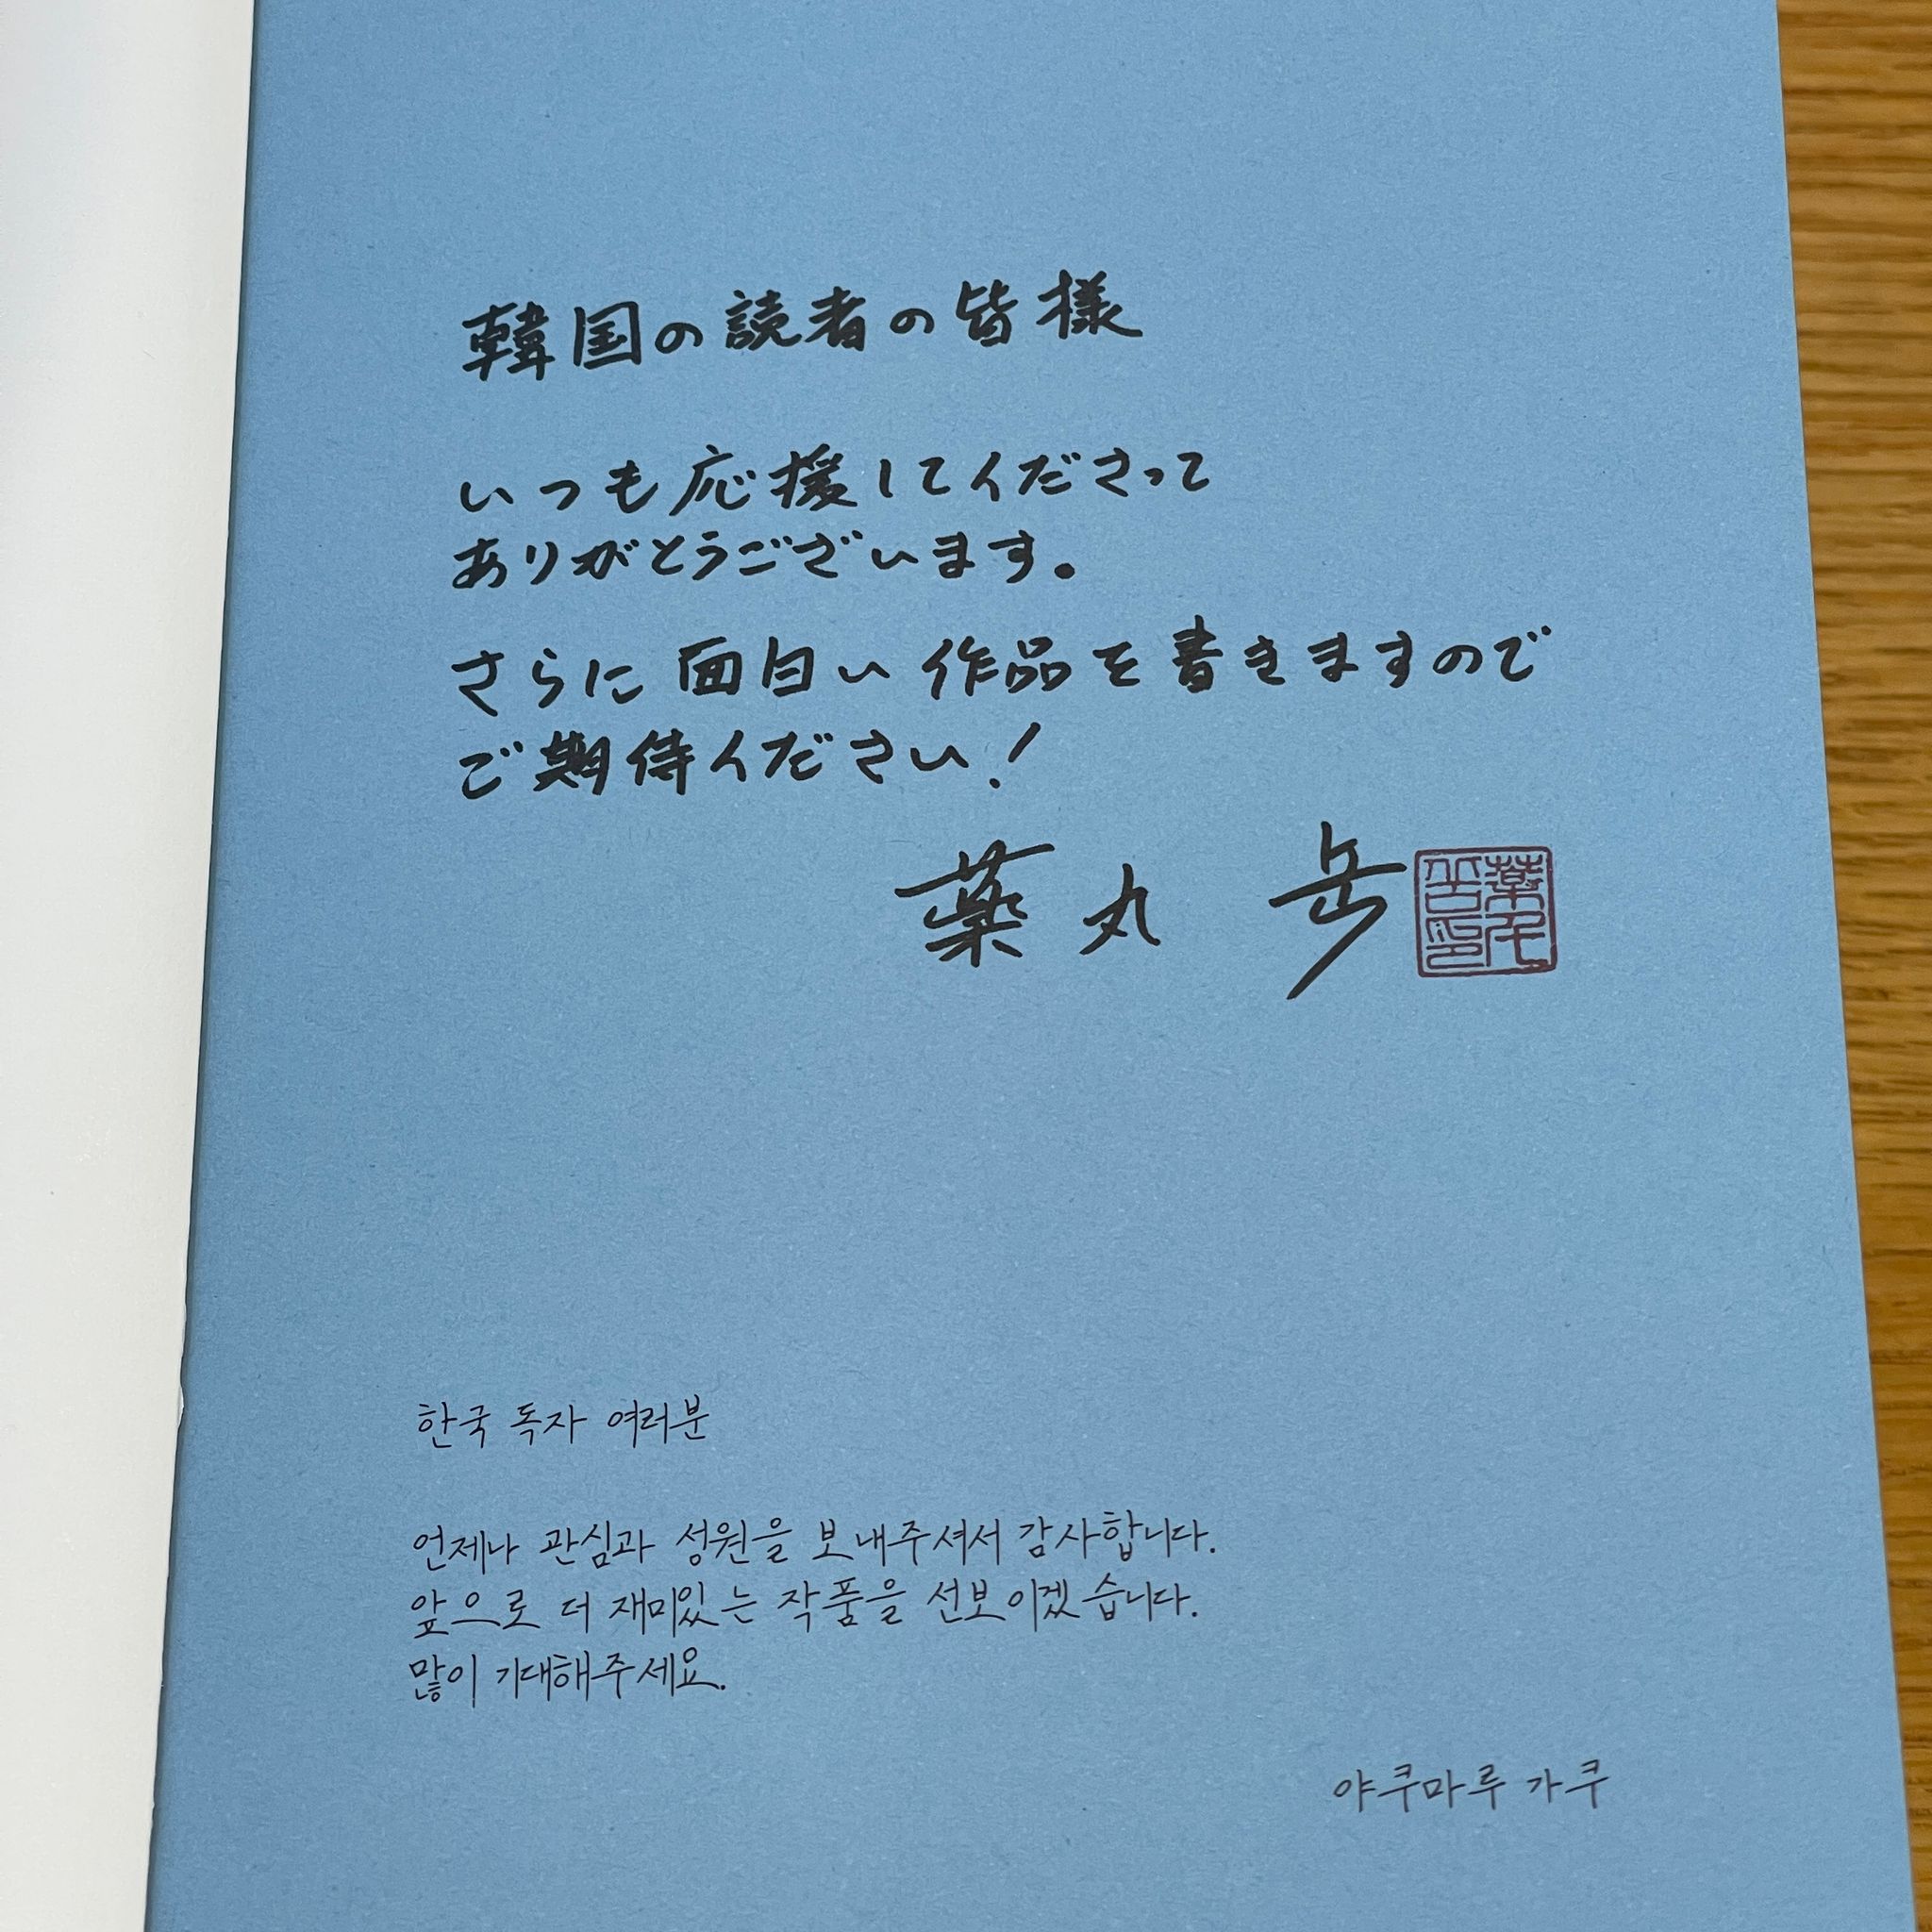 韓国の読者の皆様
いつも応援してくださって
ありがとうございます。
さらに面白い作品を書きますので
ご期待ください!
薬丸 岳
한국 독자 여러분
언제나 관심과 성원을 보내주셔서 감사합니다.
앞으로 더 재미있는 작품을 선보이겠습니다.
많이 기대해주세요.
야쿠마루 가쿠